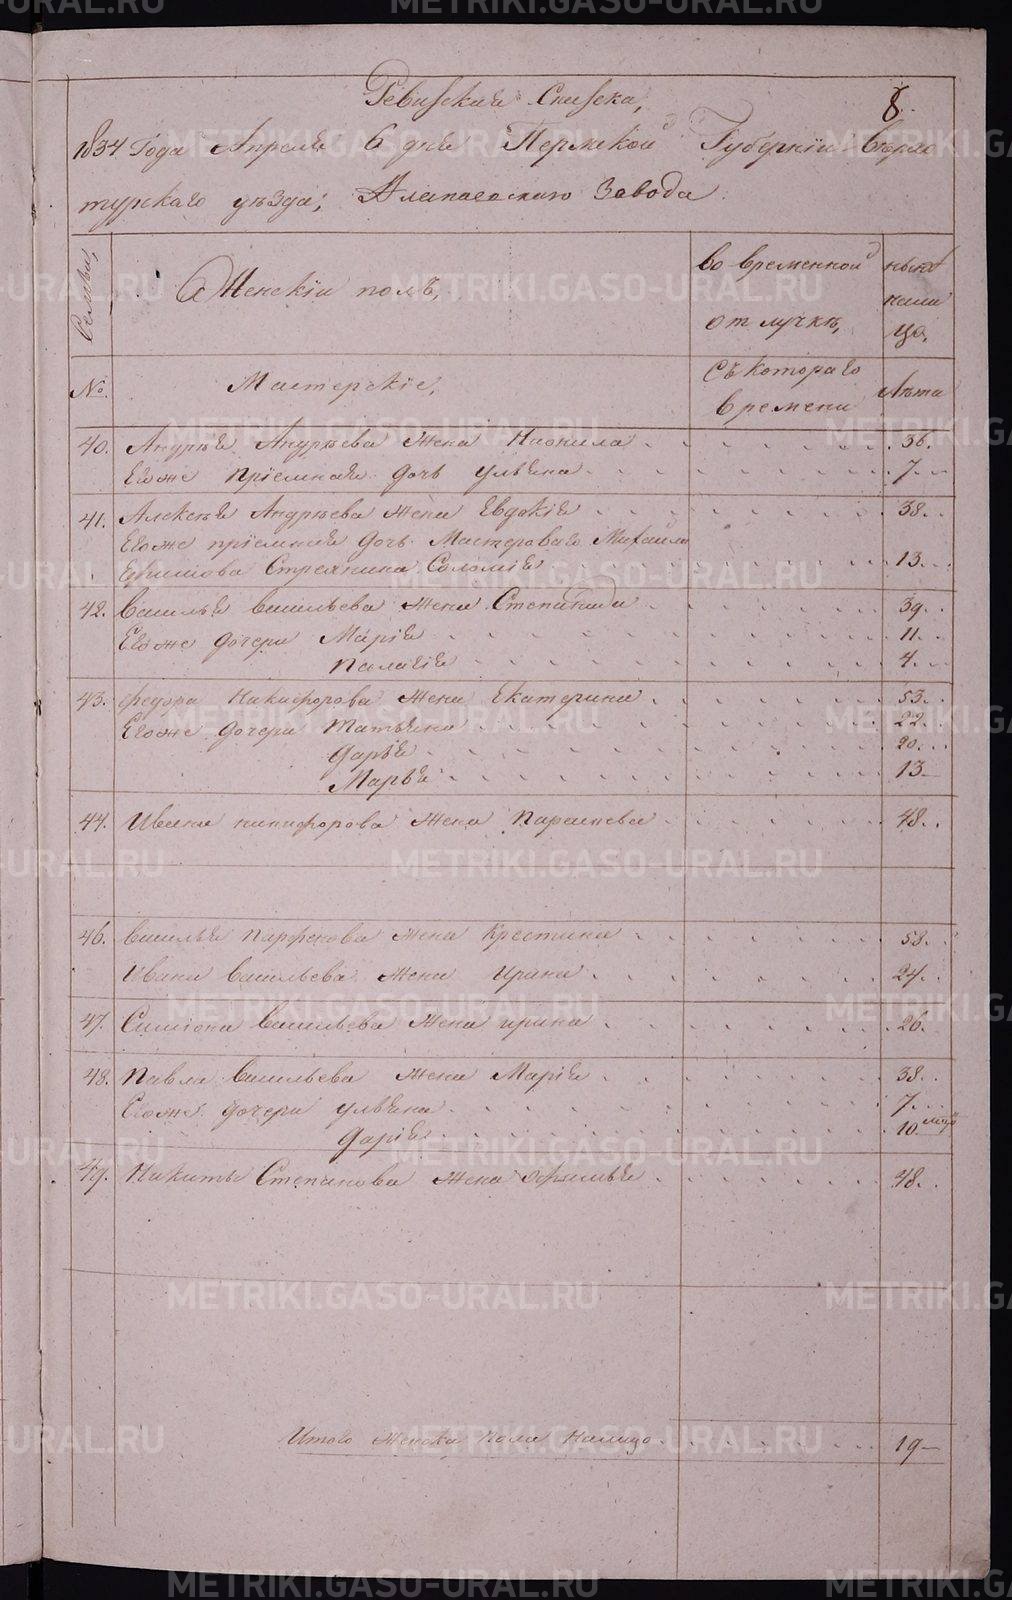 Ревизская Сказка,
8.
1834 Года Апреля 6 дня Пермской Губернiи Верхо
турскаго уѣзда; Алапаевскаго Завода.
Семьи,
Женскiй полъ,
во временной
отлучкѣ,
нынѣ
нали
цо,
№.
Мастерскiе,
Съ котораго
времени
Лѣта
40. Андрѣя Андрѣева жена Нионила 36.
Его же прiемная дочь Ульяна 7.
41. Алексѣя Андрѣева жена Евдокiя 38.
Его же прiемная дочь Мастероваго Михайла
Ефимова Стряхнина Соломiя 13.
42. Василья Васильева жена Степанида 39.
Его же дочери Марiя 11.
Палагiя 4.
43. Федора Никифорова жена Екатерина 53.
Его же дочери Татьяна 22.
Дарья 20.
Марья 13
44. Ивана никифорова жена Парасковья 48.
46. Василья Парфенова жена Крестина 58.
Ивана Васильева жена Ирина 24.
47. Симiона Васильева жена ирина 26.
48. Павла Васильева жена Марiя 38.
Его же дочери ульяна 7.
Дарiя 10 мцъ
49. Никиты Степанова жена 48.
Итого женска пола налицо 19
METRIKI.GASO-URAL.RU